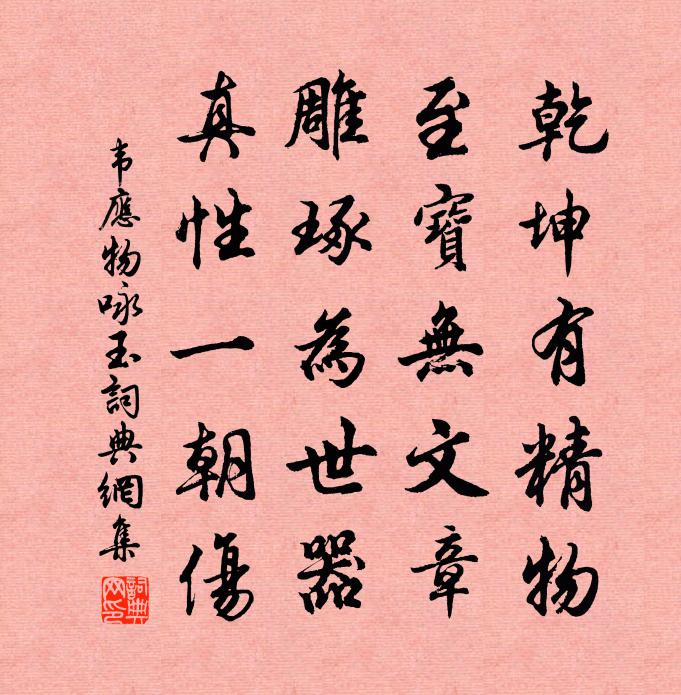 乾坤有精物
至寶無文章
雕琢為世器
真性一朝傷
韦應物咏玉詞典網集
詞典網印